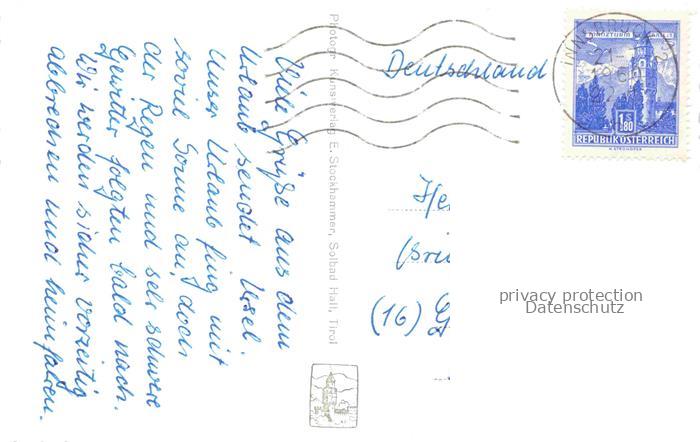 Viele Grüße aus dem
Urlaub sendet Ursel.
Unser Urlaub fing mit
soviel Sonne an, doch
der Regen und sehr schwere
Gewitter folgten bald nach.
Wir werden sicher vorzeitig
abbrechen und heimfahren.
Photogr. Kunstverlag E. Stockhammer, Solbad Hall, Tirol
Deutschland
INNSBRUCK
1 S 80
REPUBLIK ÖSTERREICH
He
(16) G
privacy protection
Datenschutz